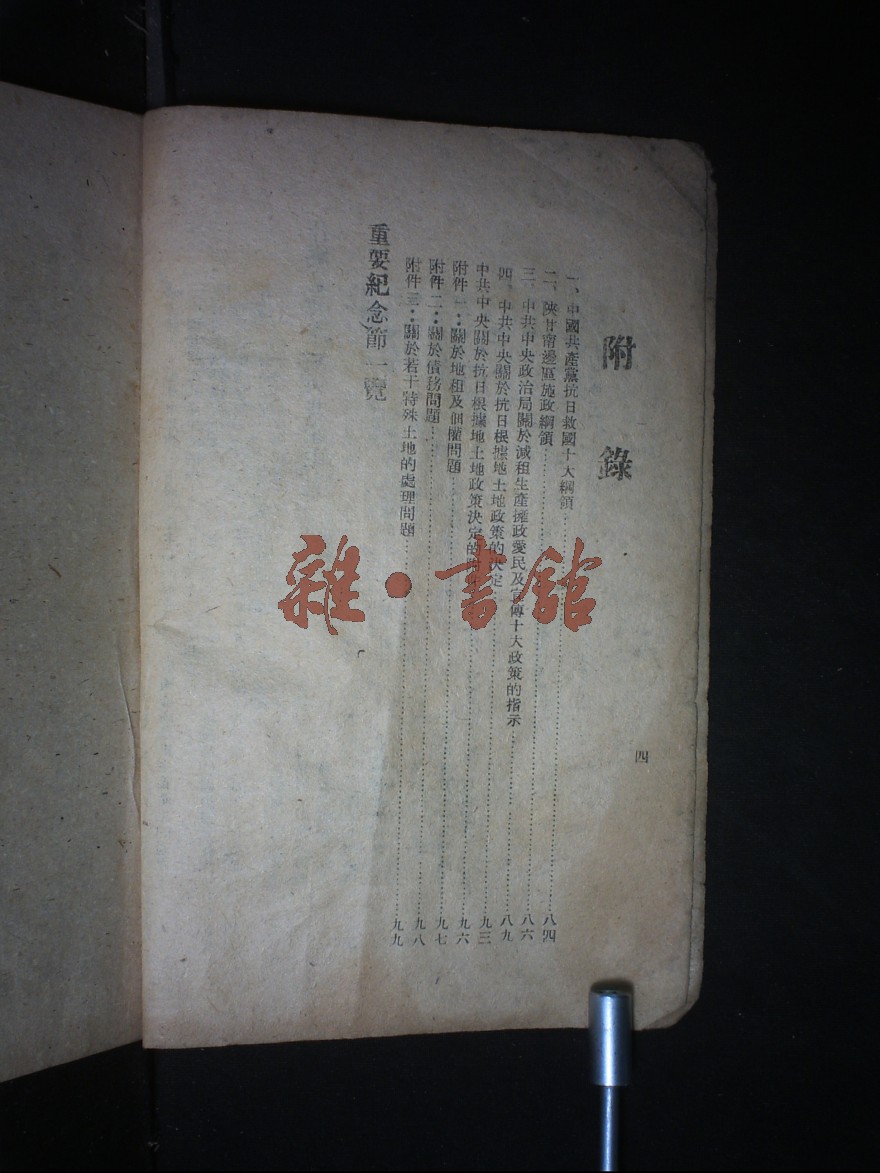 四
附錄
一、中國共產黨抗日救國十大綱領……八四
二、陝甘甯邊區施政綱領……八六
三、中共中央政治局關於減租生產擁政愛民及宣傳十大政策的指示……八九
四、中共中央關於抗日根據地土地政策的決定……九三
中共中央關於抗日根據地土地政策決定的……九六
附件一：關於地租及佃權問題……九七
附件二：關於債務問題……九八
附件三：關於若干特殊土地的處理問題……九九
重要紀念節一覽
雜·書館